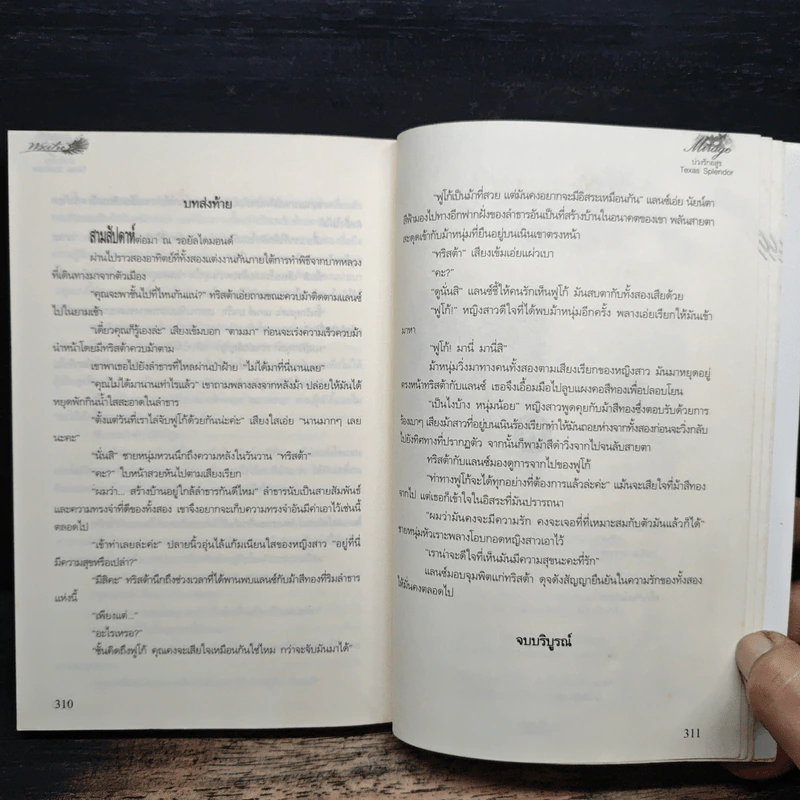 บทส่งท้าย
สามสัปดาห์ต่อมา ณ รอยัลไดมอนด์
ผ่านไปราวสองอาทิตย์ที่ทั้งสองแต่งงานกันภายใต้การทำพิธีจากบาทหลวง
ที่เดินทางมาจากตัวเมือง
"คุณจะพาชั้นไปที่ไหนกันแน่?" ทริสต้าเอ่ยถามขณะควบม้าติดตามแลนซ์
ไปในยามเช้า
"เดี๋ยวคุณก็รู้เองล่ะ" เสียงเข้มบอก "ตามมา" ก่อนจะเร่งความเร็วควบม้า
นำหน้าโดยมีทริสต้าควบม้าตาม
เขาพาเธอไปยังลำธารที่ไหลผ่านป่าฝ้าย "ไม่ได้มาที่นี่นานเลย"
"คุณไม่ได้มานานเท่าไรแล้ว" เขาถามพลางลงจากหลังม้า ปล่อยให้มันได้
หยุดพักกินน้ำใสสะอาดในลำธาร
"ตั้งแต่วันที่เราไล่จับฟูโก้ด้วยกันน่ะค่ะ" เสียงใสเอ่ย "นานมากๆ เลย
นะคะ"
"นั่นสิ" ชายหนุ่มหวนนึกถึงความหลังในวันวาน "ทริสต้า"
"คะ?" ใบหน้าสวยหันไปตามเสียงเรียก
"ผมว่า... สร้างบ้านอยู่ใกล้ลำธารกันดีไหม" ลำธารนับเป็นสายสัมพันธ์
และความทรงจำที่ดีของทั้งสอง เขาจึงอยากจะเก็บความทรงจำอันมีค่าเอาไว้เช่นนี้
ตลอดไป
"เข้าท่าเลยล่ะค่ะ" ปลายนิ้วอุ่นไล้แก้มเนียนใสของหญิงสาว "อยู่ที่นี่
มีความสุขหรือเปล่า?"
"มีสิคะ" ทริสต้านึกถึงช่วงเวลาที่ได้พานพบแลนซ์กับม้าสีทองที่ริมลำธาร
แห่งนี้
"เพียงแต่..."
"อะไรเหรอ?"
"ชั้นคิดถึงฟูโก้ คุณคงจะเสียใจเหมือนกันใช่ไหม กว่าจะจับมันมาได้"
310
Mirage
บ่วงรักอสูร
Texas Splendor
"ฟูโก้เป็นม้าที่สวย แต่มันคงอยากจะมีอิสระเหมือนกัน" แลนซ์เอ่ย นัยน์ตา
สีฟ้ามองไปทางอีกฟากฝั่งของลำธารอันเป็นที่สร้างบ้านในอนาคตของเขา พลันสายตา
สะดุดเข้ากับม้าหนุ่มที่ยืนอยู่บนเนินเขาตรงหน้า
"ทริสต้า" เสียงเข้มเอ่ยแผ่วเบา
"คะ?"
"ดูนั่นสิ" แลนซ์ชี้ให้คนรักเห็นฟูโก้ มันสบตากับทั้งสองเสียด้วย
"ฟูโก้!" หญิงสาวดีใจที่ได้พบม้าหนุ่มอีกครั้ง พลางเอ่ยเรียกให้มันเข้า
มาหา
"ฟูโก้! มานี่ มานี่สิ"
ม้าหนุ่มวิ่งมาทางคนทั้งสองตามเสียงเรียกของหญิงสาว มันมาหยุดอยู่
ตรงหน้าทริสต้ากับแลนซ์ เธอจึงเอื้อมมือไปลูบแผงคอสีทองเพื่อปลอบโยน
"เป็นไงบ้าง หนุ่มน้อย" หญิงสาวพูดคุยกับม้าสีทองซึ่งตอบรับด้วยการ
ร้องเบาๆ เสียงม้าสาวที่อยู่บนเนินร้องเรียกทำให้มันถอยห่างจากทั้งสองก่อนจะวิ่งกลับ
ไปยังทิศทางที่ปรากฏตัว จากนั้นก็พาม้าสีดำวิ่งจากไปจนลับสายตา
ทริสต้ากับแลนซ์มองดูการจากไปของฟูโก้
"ท่าทางฟูโก้จะได้ทุกอย่างที่ต้องการแล้วล่ะค่ะ" แม้นจะเสียใจที่ม้าสีทอง
จากไป แต่เธอก็เข้าใจในอิสระที่มันปรารถนา
"ผมว่ามันคงจะมีความรัก คงจะเจอที่ที่เหมาะสมกับตัวมันแล้วก็ได้"
ชายหนุ่มหัวเราะพลางโอบกอดหญิงสาวเอาไว้
"เราน่าจะดีใจที่เห็นมันมีความสุขนะคะที่รัก"
แลนซ์มอบจุมพิตแก่ทริสต้า ดุจดังสัญญายืนยันในความรักของทั้งสอง
ให้มั่นคงตลอดไป
จบบริบูรณ์
311